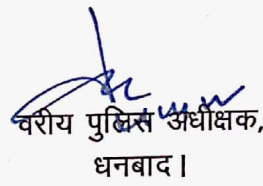 वरीय पुलिस अधीक्षक,
धनबाद।